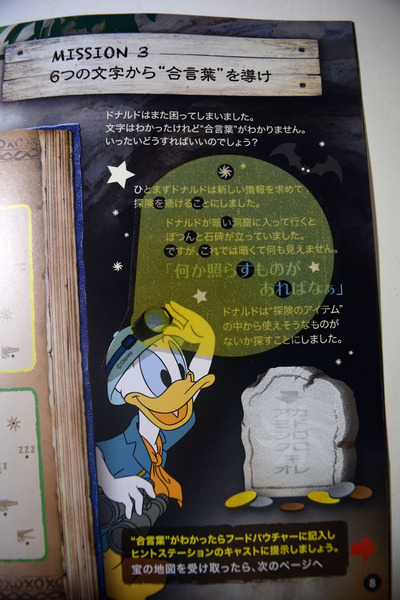 MISSION 3
6つの文字から“合言葉”を導け
ドナルドはまた困ってしまいました。
文字はわかったけれど“合言葉”がわかりません。
いったいどうすればいいのでしょう?
ひとまずドナルドは新しい情報を求めて
探険を続けることにしました。
ドナルドが暗い洞窟に入って行くと
ぽつんと石碑が立っていました。
ですが、これでは暗くて何も見えません。
「何か照らすものが
あればなぁ」
ドナルドは“探険のアイテム”
の中から使えそうなものが
ないか探すことにしました。
©Disney
zzz
“合言葉”がわかったらフードバウチャーに記入し
ヒントステーションのキャストに提示しましょう。
宝の地図を受け取ったら、次のページへ
8